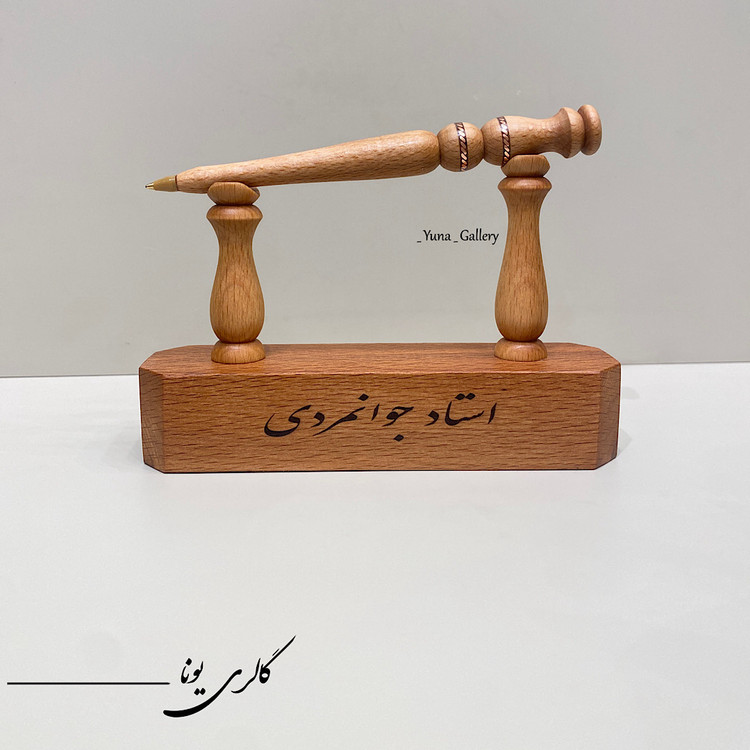 _Yuna_Gallery
استاد جوانمردی
گالری یونا